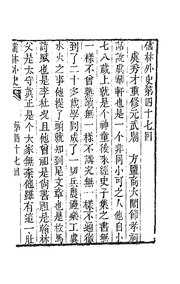 儒林外史第四十七回
虞秀才重修元武閣　方鹽商大鬧節孝祠
話說虞華軒也是一個非同小可之人他自小
七八歲上就是個神童後來經史子集之書無
一樣不曾熟讀無一樣不講究無一樣不通徹
到了二十多歲學問成了一切兵農禮樂工虞
水火之事他提了頭就知到尾文章也是枚馬
詩賦也是李杜況且他曾祖是尚書祖是翰林
父是太守真正是個大家無奈他雖有這一肚
儒林外史　第四十七回